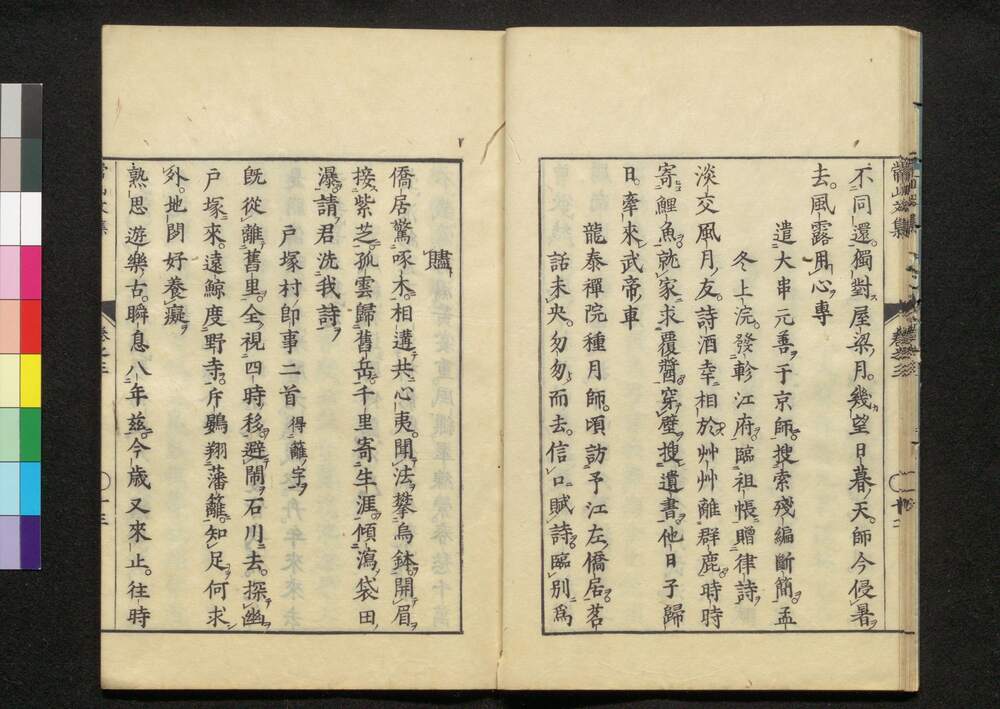 不同還。獨對屋梁月。幾望日暮天。師今侵暑
去。風露用心專
遣大串元善于京師。搜索殘編斷簡。孟
冬上浣。發軫江府。臨祖帳贈律詩
淡交風月友。詩酒幸相於。艸艸離群鹿。時時
寄鯉魚。就家求覆醬。穿壁搜遺書。他日子歸
日。牽來武帝車
龍泰禪院種月師。頃訪予江左僑居。茗
話未央。匆匆而去。信口賦詩。臨別為
贐
僑居驚啄木。相遘共心夷。聞法攀烏鉢。開眉
接紫芝。孤雲歸舊岳。千里寄生涯。傾瀉袋田
瀑。請君洗我詩
戶塚村即事二首 得籬字
既從離舊里。全視四時移。避鬧石川去。探幽
戶塚來。遠鯨度野寺。斥鷃翔藩籬。知足何求
外。地閉好養癡
熟思遊樂古。瞬息八年茲。今歲又來止。往時
卷之三
十三